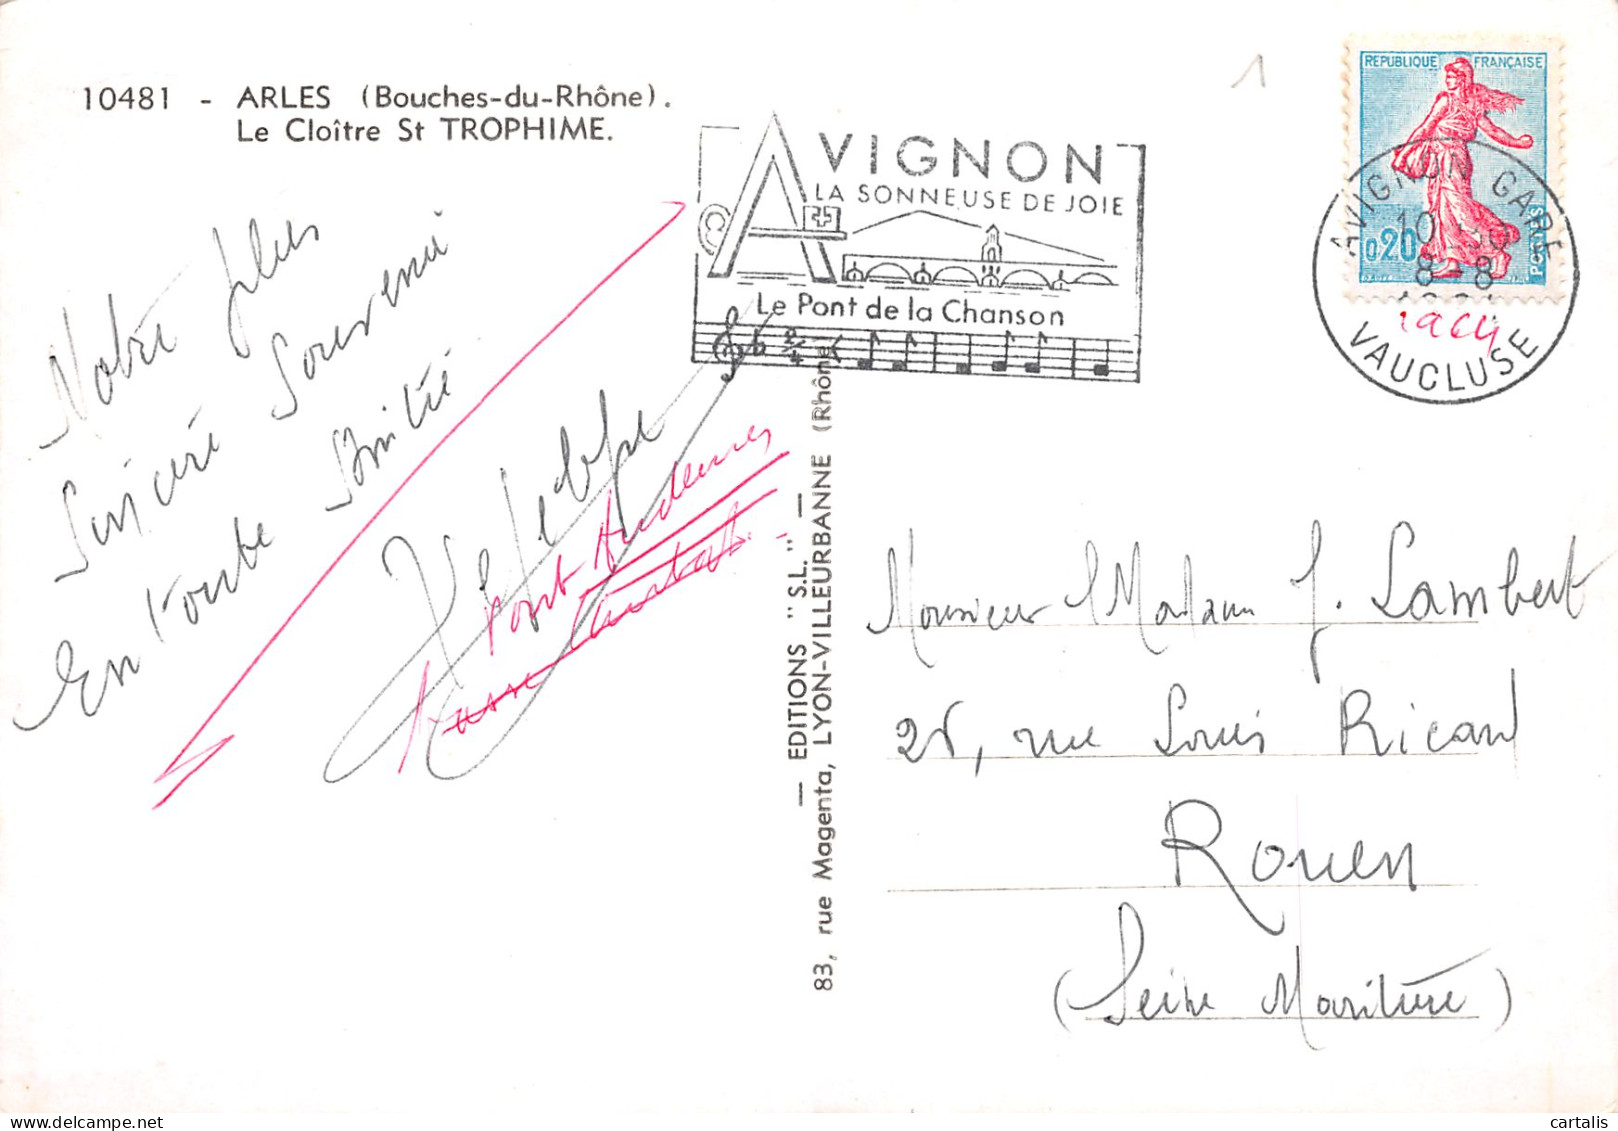 10481 - ARLES (Bouches-du-Rhône).
Le Cloître St TROPHIME.
1
REPUBLIQUE FRANÇAISE
0,20
POSTES
AVIGNON GARE
10 30
8 - 8
VAUCLUSE
AVIGNON
LA SONNEUSE DE JOIE
Le Pont de la Chanson
2/4
Notre plus
Sincère Souvenir
En toute Amitié
Pont Audemer
— EDITIONS "S.L." —
83, rue Magenta, LYON-VILLEURBANNE (Rhône)
Monsieur Madame J. Lambert
28, rue Louis Ricard
Rouen
(Seine Maritime)
delcampe.net
cartalis